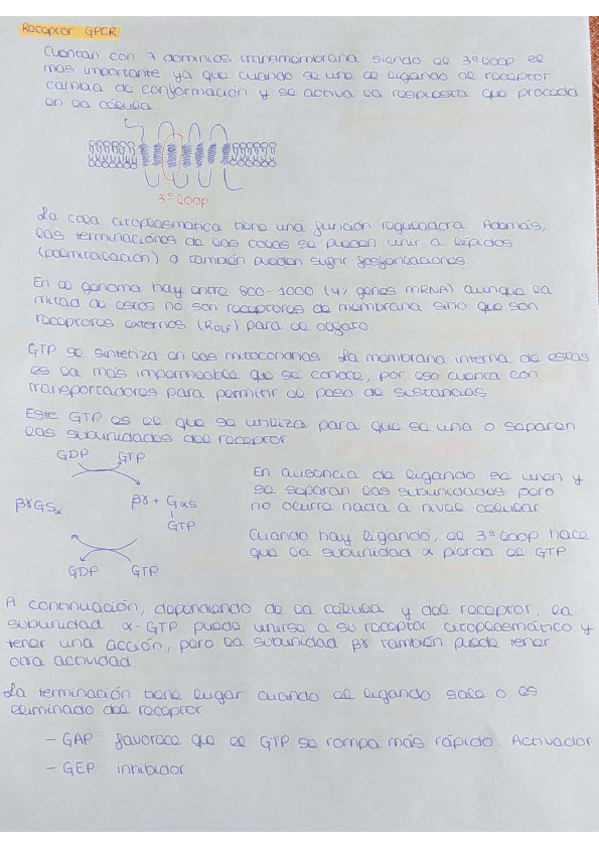 Receptor GPCR
Cuentan con 7 dominios transmembrana siendo el 3º loop el
más importante ya que cuando se une el ligando al receptor
cambia de conformación y se activa la respuesta que proceda
en la célula.
3º loop
La cola citoplasmática tiene una función reguladora. Además,
las terminaciones de las colas se pueden unir a lípidos
(palmitoilación) o también pueden sufrir fosforilaciones.
En el genoma hay entre 800-1000 (4% genes mRNA) aunque la
mitad de estos no son receptores de membrana sino que son
receptores externos (Rolf) para el olfato.
GTP se sintetiza en las mitocondrias. La membrana interna de estas
es la más impermeable que se conoce, por eso cuenta con
transportadores para permitir el paso de sustancias.
Este GTP es el que se utiliza para que se una o separen
las subunidades del receptor
GDP GTP
βγGSα βγ + Gαs
GTP
GDP GTP
En ausencia de ligando se unen y
se separan las subunidades pero
no ocurre nada a nivel celular
Cuando hay ligando, el 3º loop hace
que la subunidad α pierda el GTP
A continuación, dependiendo de la célula y del receptor, la
subunidad α-GTP puede unirse a su receptor citoplasmático y
tener una acción, pero la subunidad βγ también puede tener
otra actividad
La terminación tiene lugar cuando el ligando sale o es
eliminado del receptor.
- GAP : favorece que el GTP se rompa más rápido. Activador
- GEP : inhibidor